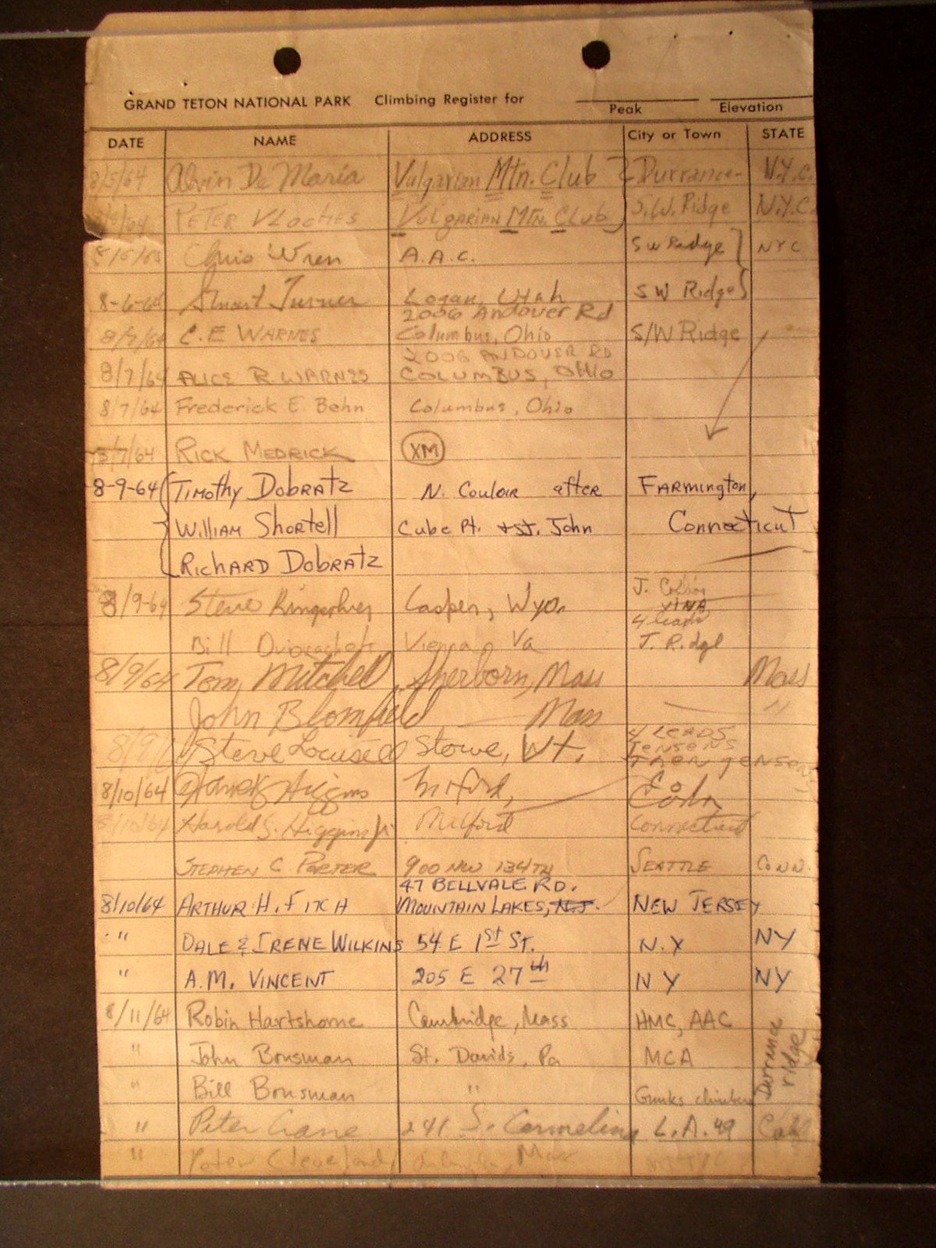 GRAND TETON NATIONAL PARK Climbing Register for
Peak Elevation
DATE NAME ADDRESS City or Town STATE
8/5/64 Alvin De Maria Vulgarian Mtn. Club } Durrance- N.Y.C.
/64 PETER VLACHES VULGARIAN MTN. CLUB S.W. Ridge N.Y.C.
8/5/64 Chris Wren A.A.C. SW Ridge } NYC
8-6-64 Stuart Turner Logan, Utah SW Ridge }
2006 Andover Rd
8/7/64 C.E WARNES Columbus, Ohio S/W Ridge
2006 ANDOVER RD
8/7/64 ALICE R. WARNES COLUMBUS, OHIO
8/7/64 Frederick E. Bohn Columbus, Ohio
8/7/64 RICK MEDRICK XM
8-9-64 TIMOTHY DOBRATZ N. Couloir after FARMINGTON,
WILLIAM SHORTELL Cube Pt. & St. John Connecticut
RICHARD DOBRATZ
8/9-64 Steve Casper, Wyo.
4 leads
Bill Vienna Va J. Ridge
8/9/64 Tom Mitchell, Sherborn, Mass Mass
John Blomfield, — Mass "
4 LEADS
8/9/ Steve Stowe, Vt. JENSENS
THEN JENSEN
8/10/64 Higgins Milford, Conn
8/10/64 Harold S. Higgins Jr Milford Connecticut
STEPHEN C PORTER 900 NW 134TH SEATTLE CONN.
47 BELLVALE RD.
8/10/64 ARTHUR H. FITCH MOUNTAIN LAKES, N.J. NEW JERSEY
" DALE & IRENE WILKINS 54 E 1st ST. N.Y NY
" A.M. VINCENT 205 E 27th NY NY
8/11/64 Robin Hartshorne Cambridge, Mass HMC, AAC
" John Bousman St. Davids, Pa MCA
" Bill Bousman " Gunks climber
Durrance ridge
" Peter Crane 241 S. Carmelina L.A. 49 Calif
" Peter Cleveland Mass